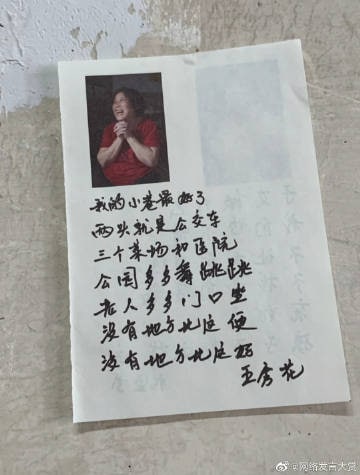 我的小巷最好了
两头就是公交车
三个菜场和医院
公园多多舞跳跳
老人多多门口坐
没有地方比这便
没有地方比这好
王秀花
@网络发言大赏